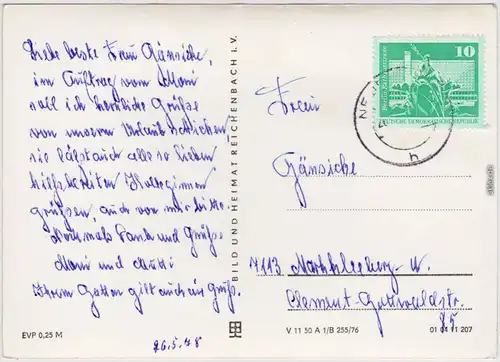 Liebe beste Frau Gänsicke,
im Auftrag von Moni
soll ich herzliche Grüße
von unserem Urlaub schicken
sie läßt auch alle so lieben
hilfsbereiten Kolleginnen
grüßen, auch von mir bitte.
Nochmals Dank und Grüße
Moni und Mutti
Ihrem Gatten gilt auch ein Gruß.
EVP 0,25 M
26.5.78
BILD UND HEIMAT REICHENBACH i. V.
10
DEUTSCHE DEMOKRATISCHE REPUBLIK
Frau
Gänsicke
7113 Markkleeberg-W.
Clement-Gottwaldstr.
25
V 11 50 A 1/B 255/76
01 04 11 207